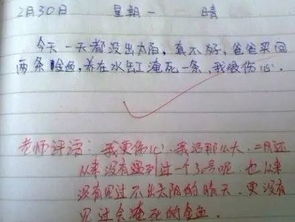 2月30日 星期一 晴
今天一天都没出太阳,真不好,爸爸买回
两条金鱼,养在水缸淹死一条,我很伤心。
老师评语:我更伤心!我活那么大,二月还
从来没有碰到过一个30号呢,也从来
没有见过不出太阳的晴天,更没有
见过会淹死的金鱼